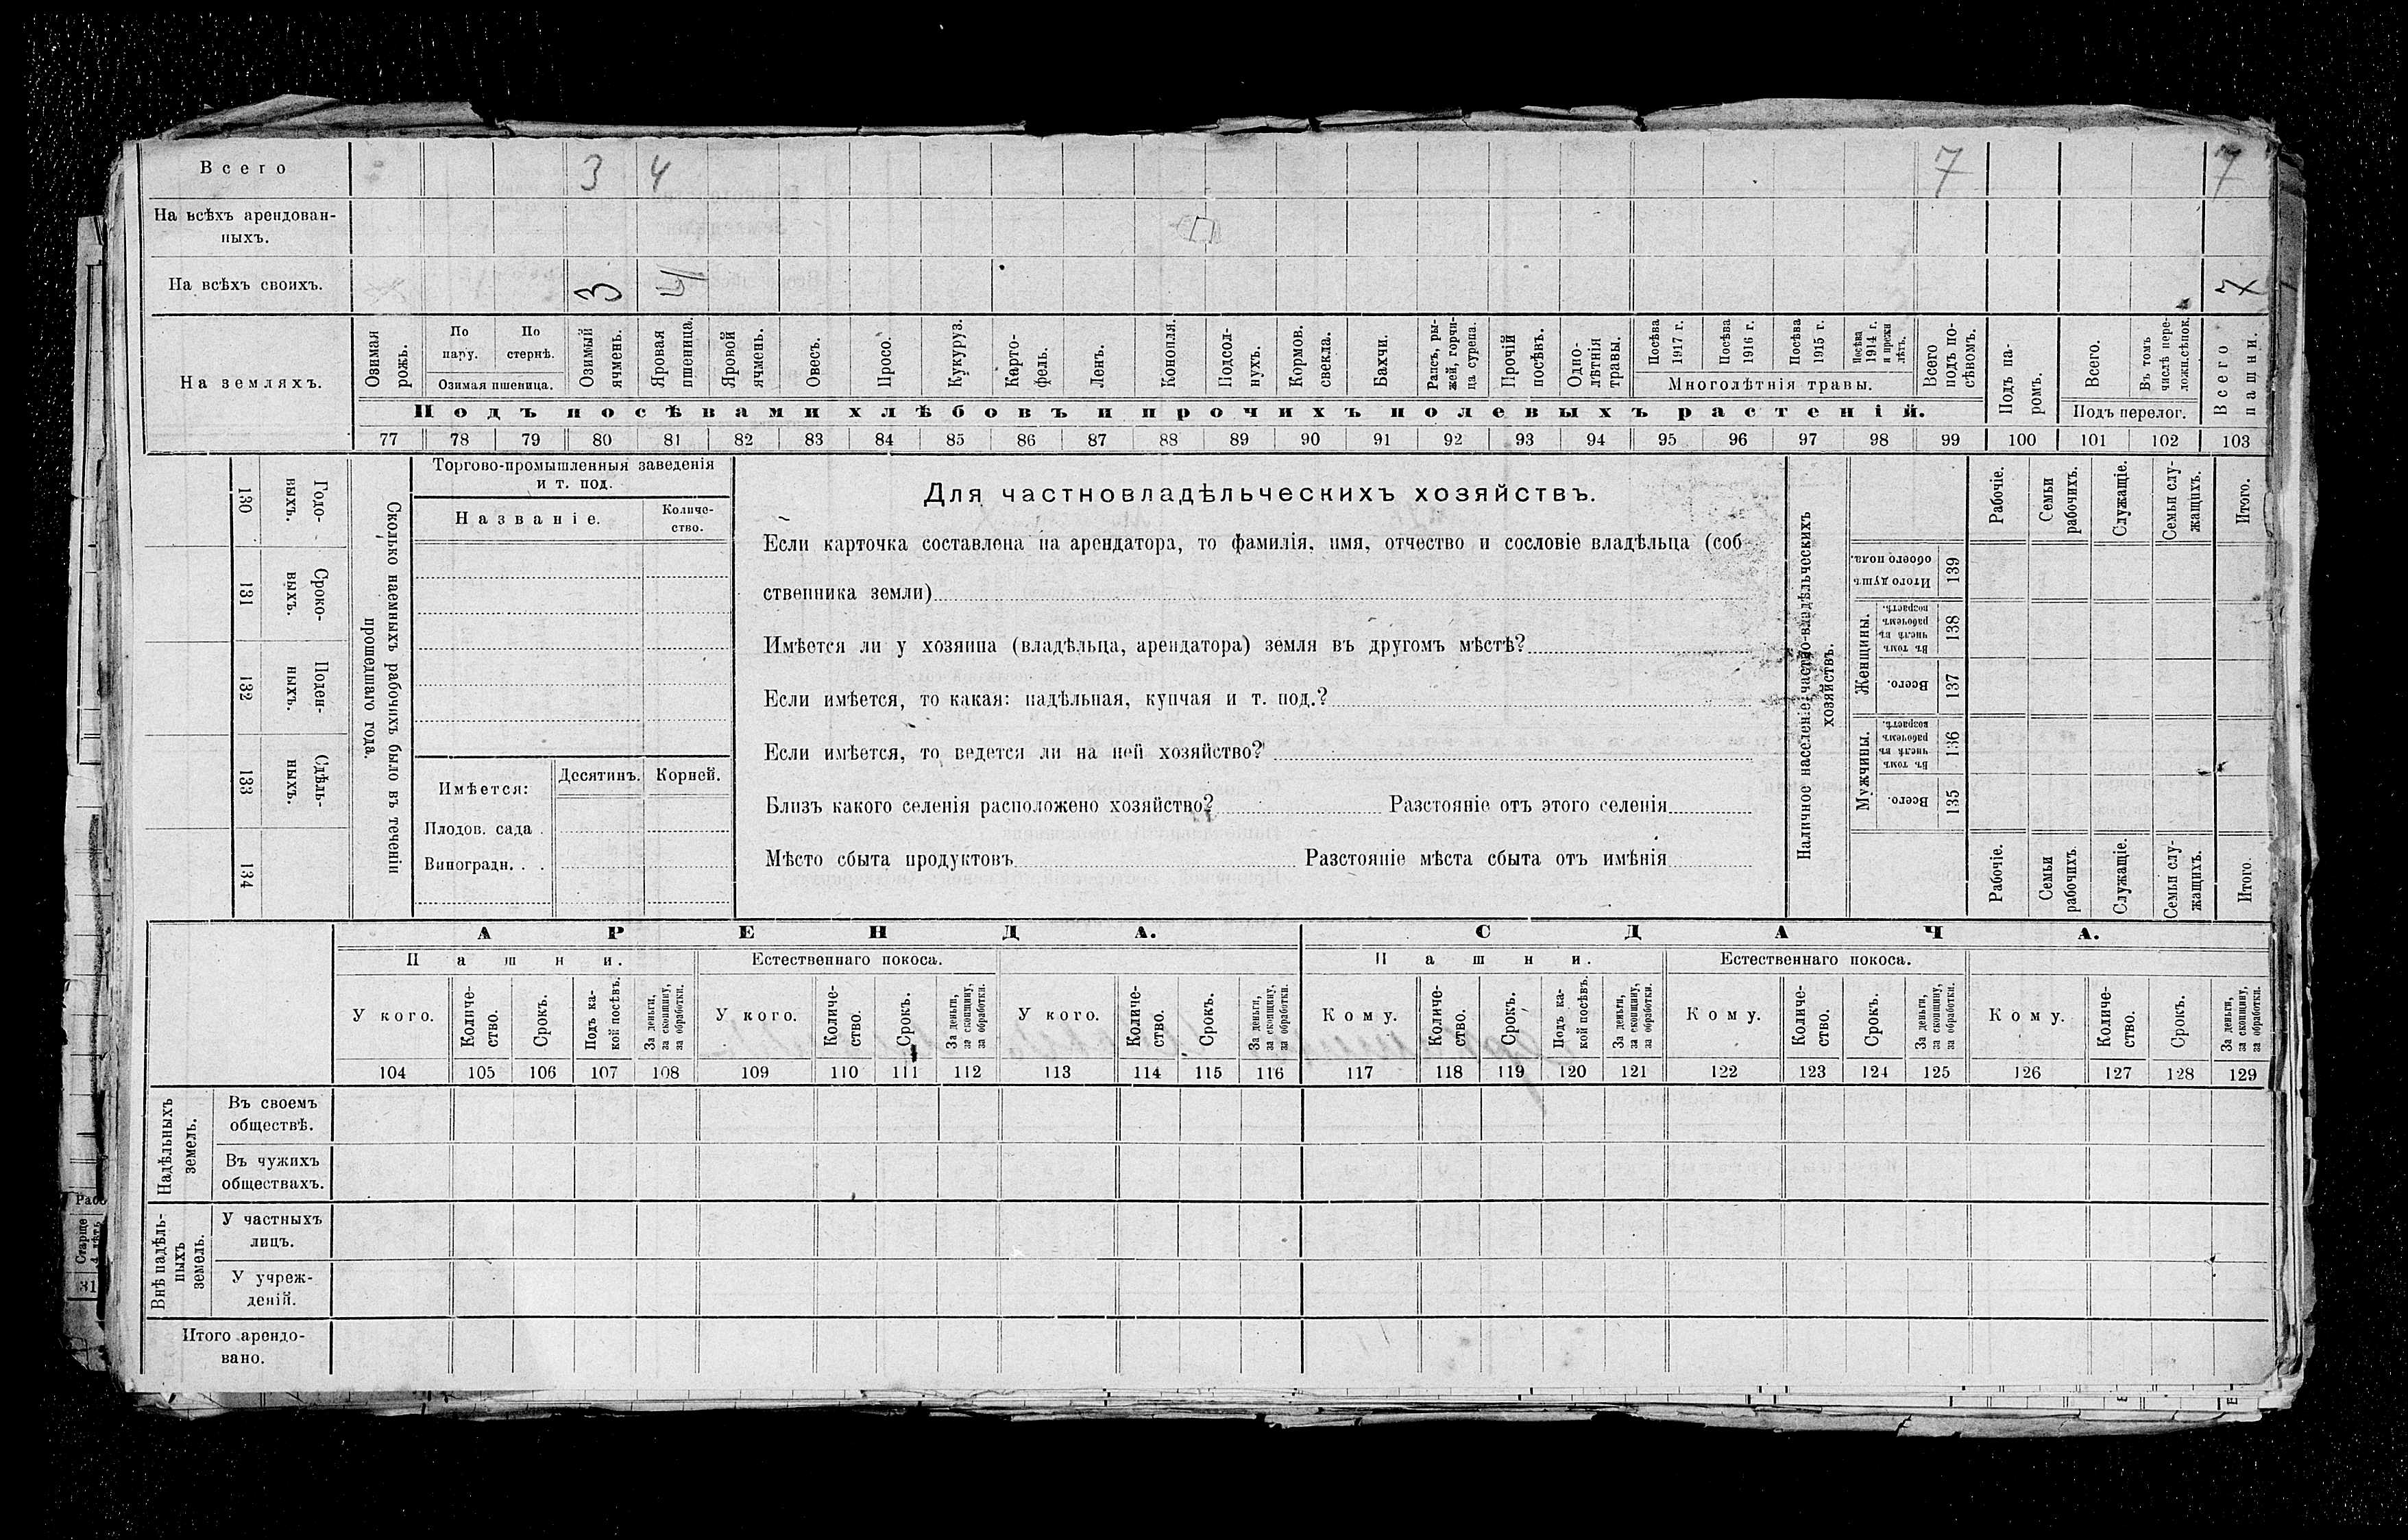 Всего 3 4 7 7
На всѣхъ арендован-
ныхъ.
На всѣхъ своихъ. 3 4 7
На земляхъ.
Озимая рожь.
По пару.
По стернѣ.
Озимая пшеница.
Озимый ячмень.
Яровая пшеница.
Яровой ячмень.
Овесъ.
Просо.
Кукуруз.
Карто-
фель.
Ленъ.
Конопля.
Подсол-
нухъ.
Кормов. свекла.
Бахчи.
Рапсъ, ры-
жей, горчи-
ца сурепа.
Прочій посѣвъ.
Одно-
лѣтнія травы.
Посѣва 1917 г.
Посѣва 1916 г.
Посѣва 1915 г.
Посѣва 1914 г. и прежн лѣтъ.
Многолѣтнія травы.
Всего подъ по-
сѣвомъ.
Подъ па-
ромъ.
Всего.
Въ томъ числѣ пере-
ложн.сѣнок.
Подъ перелог.
Всего пашни.
Подъ посѣвами хлѣбовъ и прочихъ полевыхъ растеній.
77 78 79 80 81 82 83 84 85 86 87 88 89 90 91 92 93 94 95 96 97 98 99 100 101 102 103
130 Годо-
выхъ.
131 Сроко-
выхъ.
132 Поден-
ныхъ.
133 Сдѣль-
ныхъ.
134
Сколько наемныхъ рабочихъ было въ теченіи
прошедшаго года.
Торгово-промышленныя заведенія
и т. под.
Названіе.
Количе-
ство.
Имѣется:
Десятинъ. Корней.
Плодов. сада .
Виноградн. . .
Для частновладѣльческихъ хозяйствъ.
Если карточка составлена на арендатора, то фамилія, имя, отчество и сословіе владѣльца (соб
ственника земли)
Имѣется ли у хозяина (владѣльца, арендатора) земля въ другомъ мѣстѣ?
Если имѣется, то какая: надѣльная, купчая и т. под.?
Если имѣется, то ведется ли на ней хозяйство?
Близъ какого селенія расположено хозяйство? Разстояніе отъ этого селенія
Мѣсто сбыта продуктовъ Разстояніе мѣста сбыта отъ имѣнія
Наличное населеніе частно-владѣльческихъ
хозяйствъ.
Рабочіе.
Семьи рабочихъ.
Служащіе.
Семьи слу-
жащихъ.
Итого.
Итого душъ обоего пола. 139
Женщины.
Въ томъ числѣ въ рабочемъ возрастѣ. 138
Всего. 137
Мужчины.
Въ томъ числѣ въ рабочемъ возрастѣ. 136
Всего. 135
Рабочіе.
Семьи рабочихъ
Служащіе.
Семьи слу-
жащихъ.
Итого.
АРЕНДА. СДАЧА.
Пашни. Естественнаго покоса. Пашни. Естественнаго покоса.
У кого.
Количе-
ство.
Срокъ.
Подъ ка-
кой посѣвъ.
За деньги, за скопщину, за обработки.
У кого.
Количе-
ство.
Срокъ.
За деньги, за скопщину, за обработки.
У кого.
Количе-
ство.
Срокъ.
За деньги, за скопщину, за обработки.
Кому.
Количе-
ство.
Срокъ.
Подъ ка-
кой посѣвъ.
За деньги, за скопщину, за обработки.
Кому.
Количе-
ство.
Срокъ.
За деньги, за скопщину, за обработки.
Кому.
Количе-
ство.
Срокъ.
За деньги, за скопщину, за обработки.
104 105 106 107 108 109 110 111 112 113 114 115 116 117 118 119 120 121 122 123 124 125 126 127 128 129
Надѣльныхъ земель.
Въ своемъ
обществѣ.
Въ чужихъ
обществахъ.
Внѣ надѣль-
ныхъ земель.
У частныхъ
лицъ.
У учреж-
деній.
Итого арендо-
вано.
Старше
31